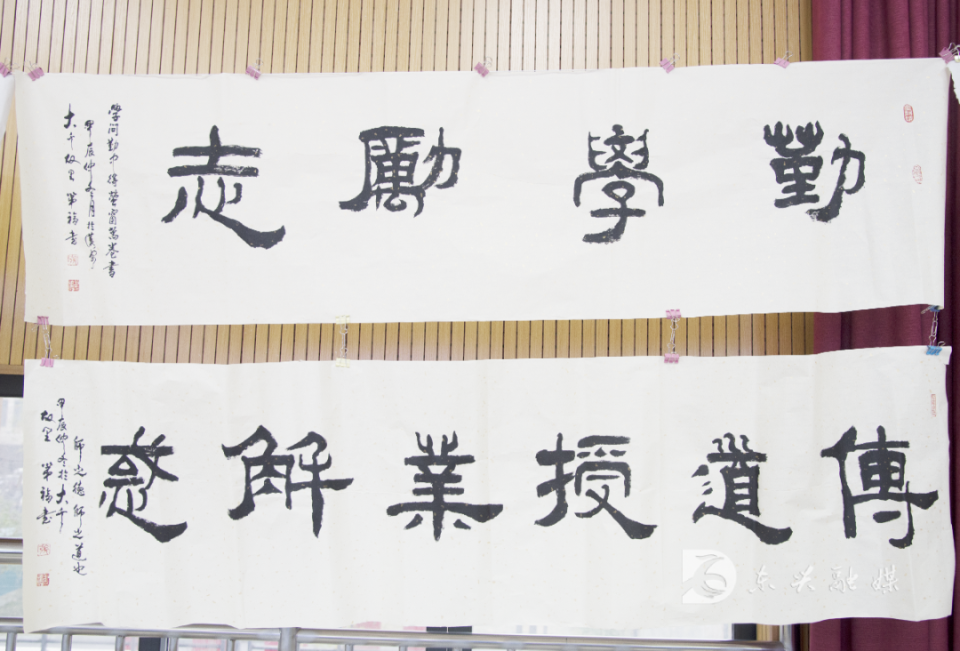 勤學勵志
學問勤中得螢窗萬卷書
甲辰仲冬月於漢安
大千故里 書
傳道授業解惑
師之德師之道也
甲辰仲冬於大千
故里 書
东兴融媒